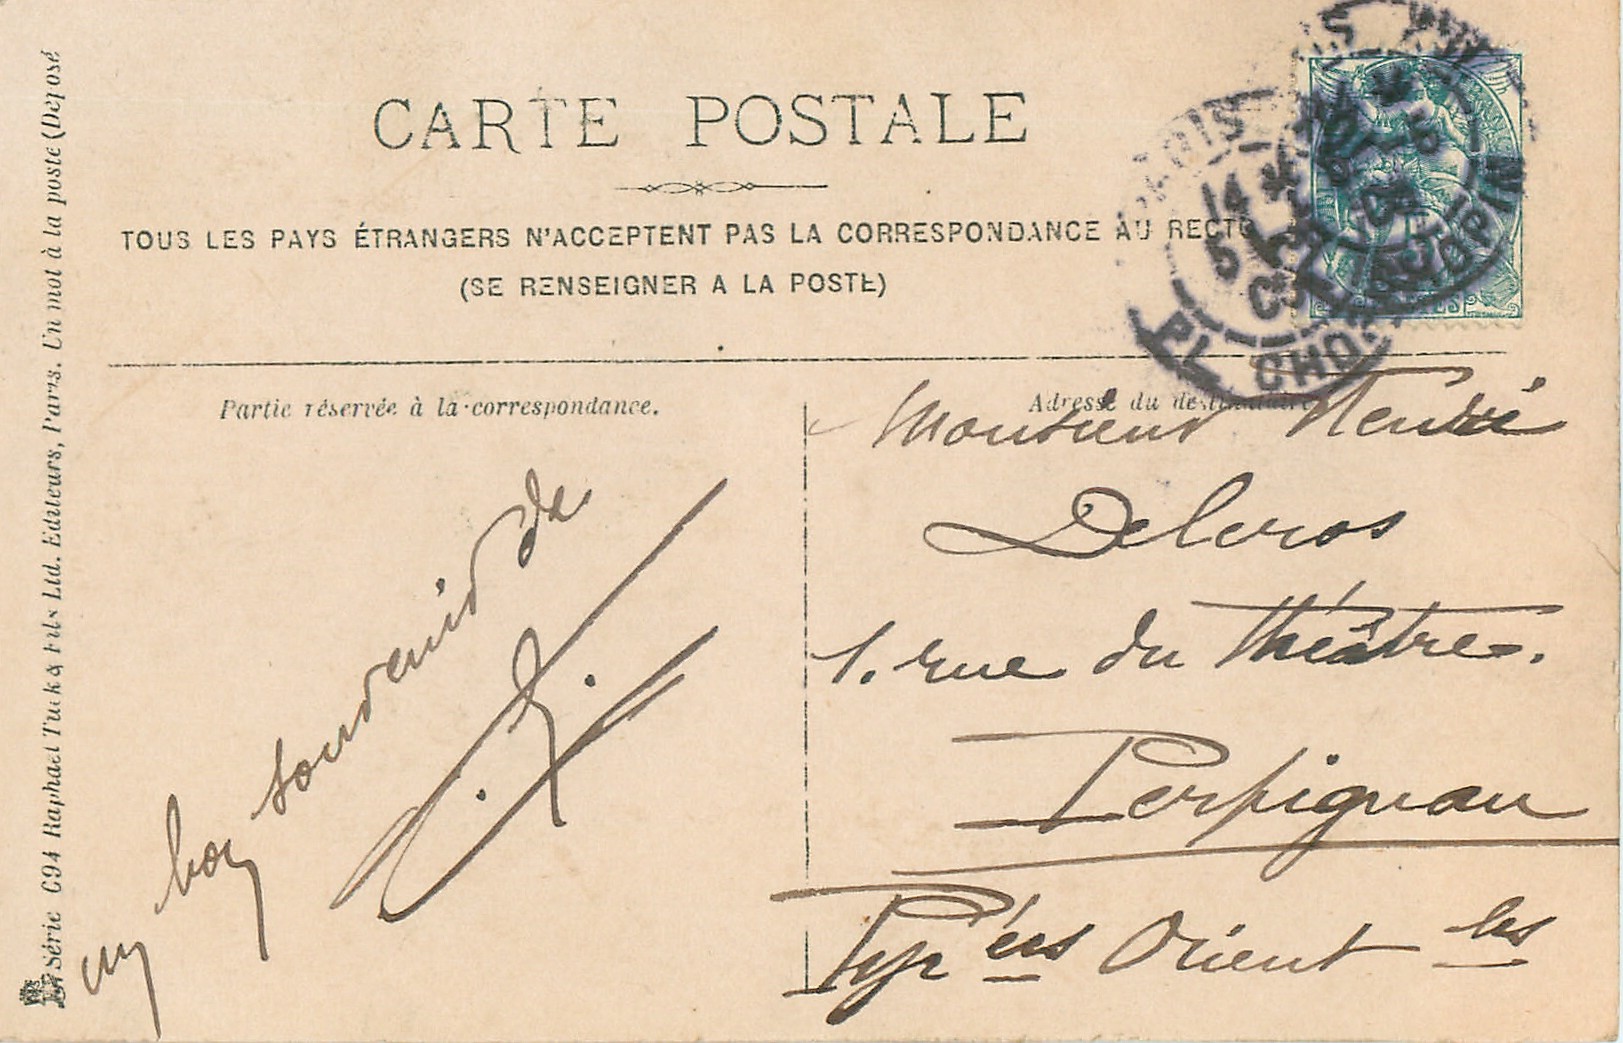 CARTE POSTALE
TOUS LES PAYS ÉTRANGERS N'ACCEPTENT PAS LA CORRESPONDANCE AU RECTO
(SE RENSEIGNER A LA POSTE)
Série C94 Raphael Tuck & Fils Ltd. Editeurs, Paris. Un mot à la poste (Déposé
Partie réservée à la correspondance.
un bon souvenir de
Adresse du destinataire
Monsieur Henri
Delcros
1. rue du Théâtre.
Perpignan
Pyrées Orientles
14
5
PL CHO